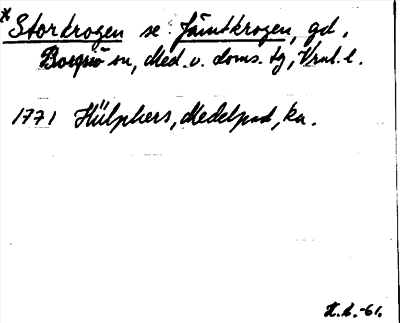 * Storkrogen se Jämtkrogen, gd,
Borgsjö sn, Med. v. doms. tg, Vrnl. l.
1771 Hülphers, Medelpad, ka.
H. L. -61.